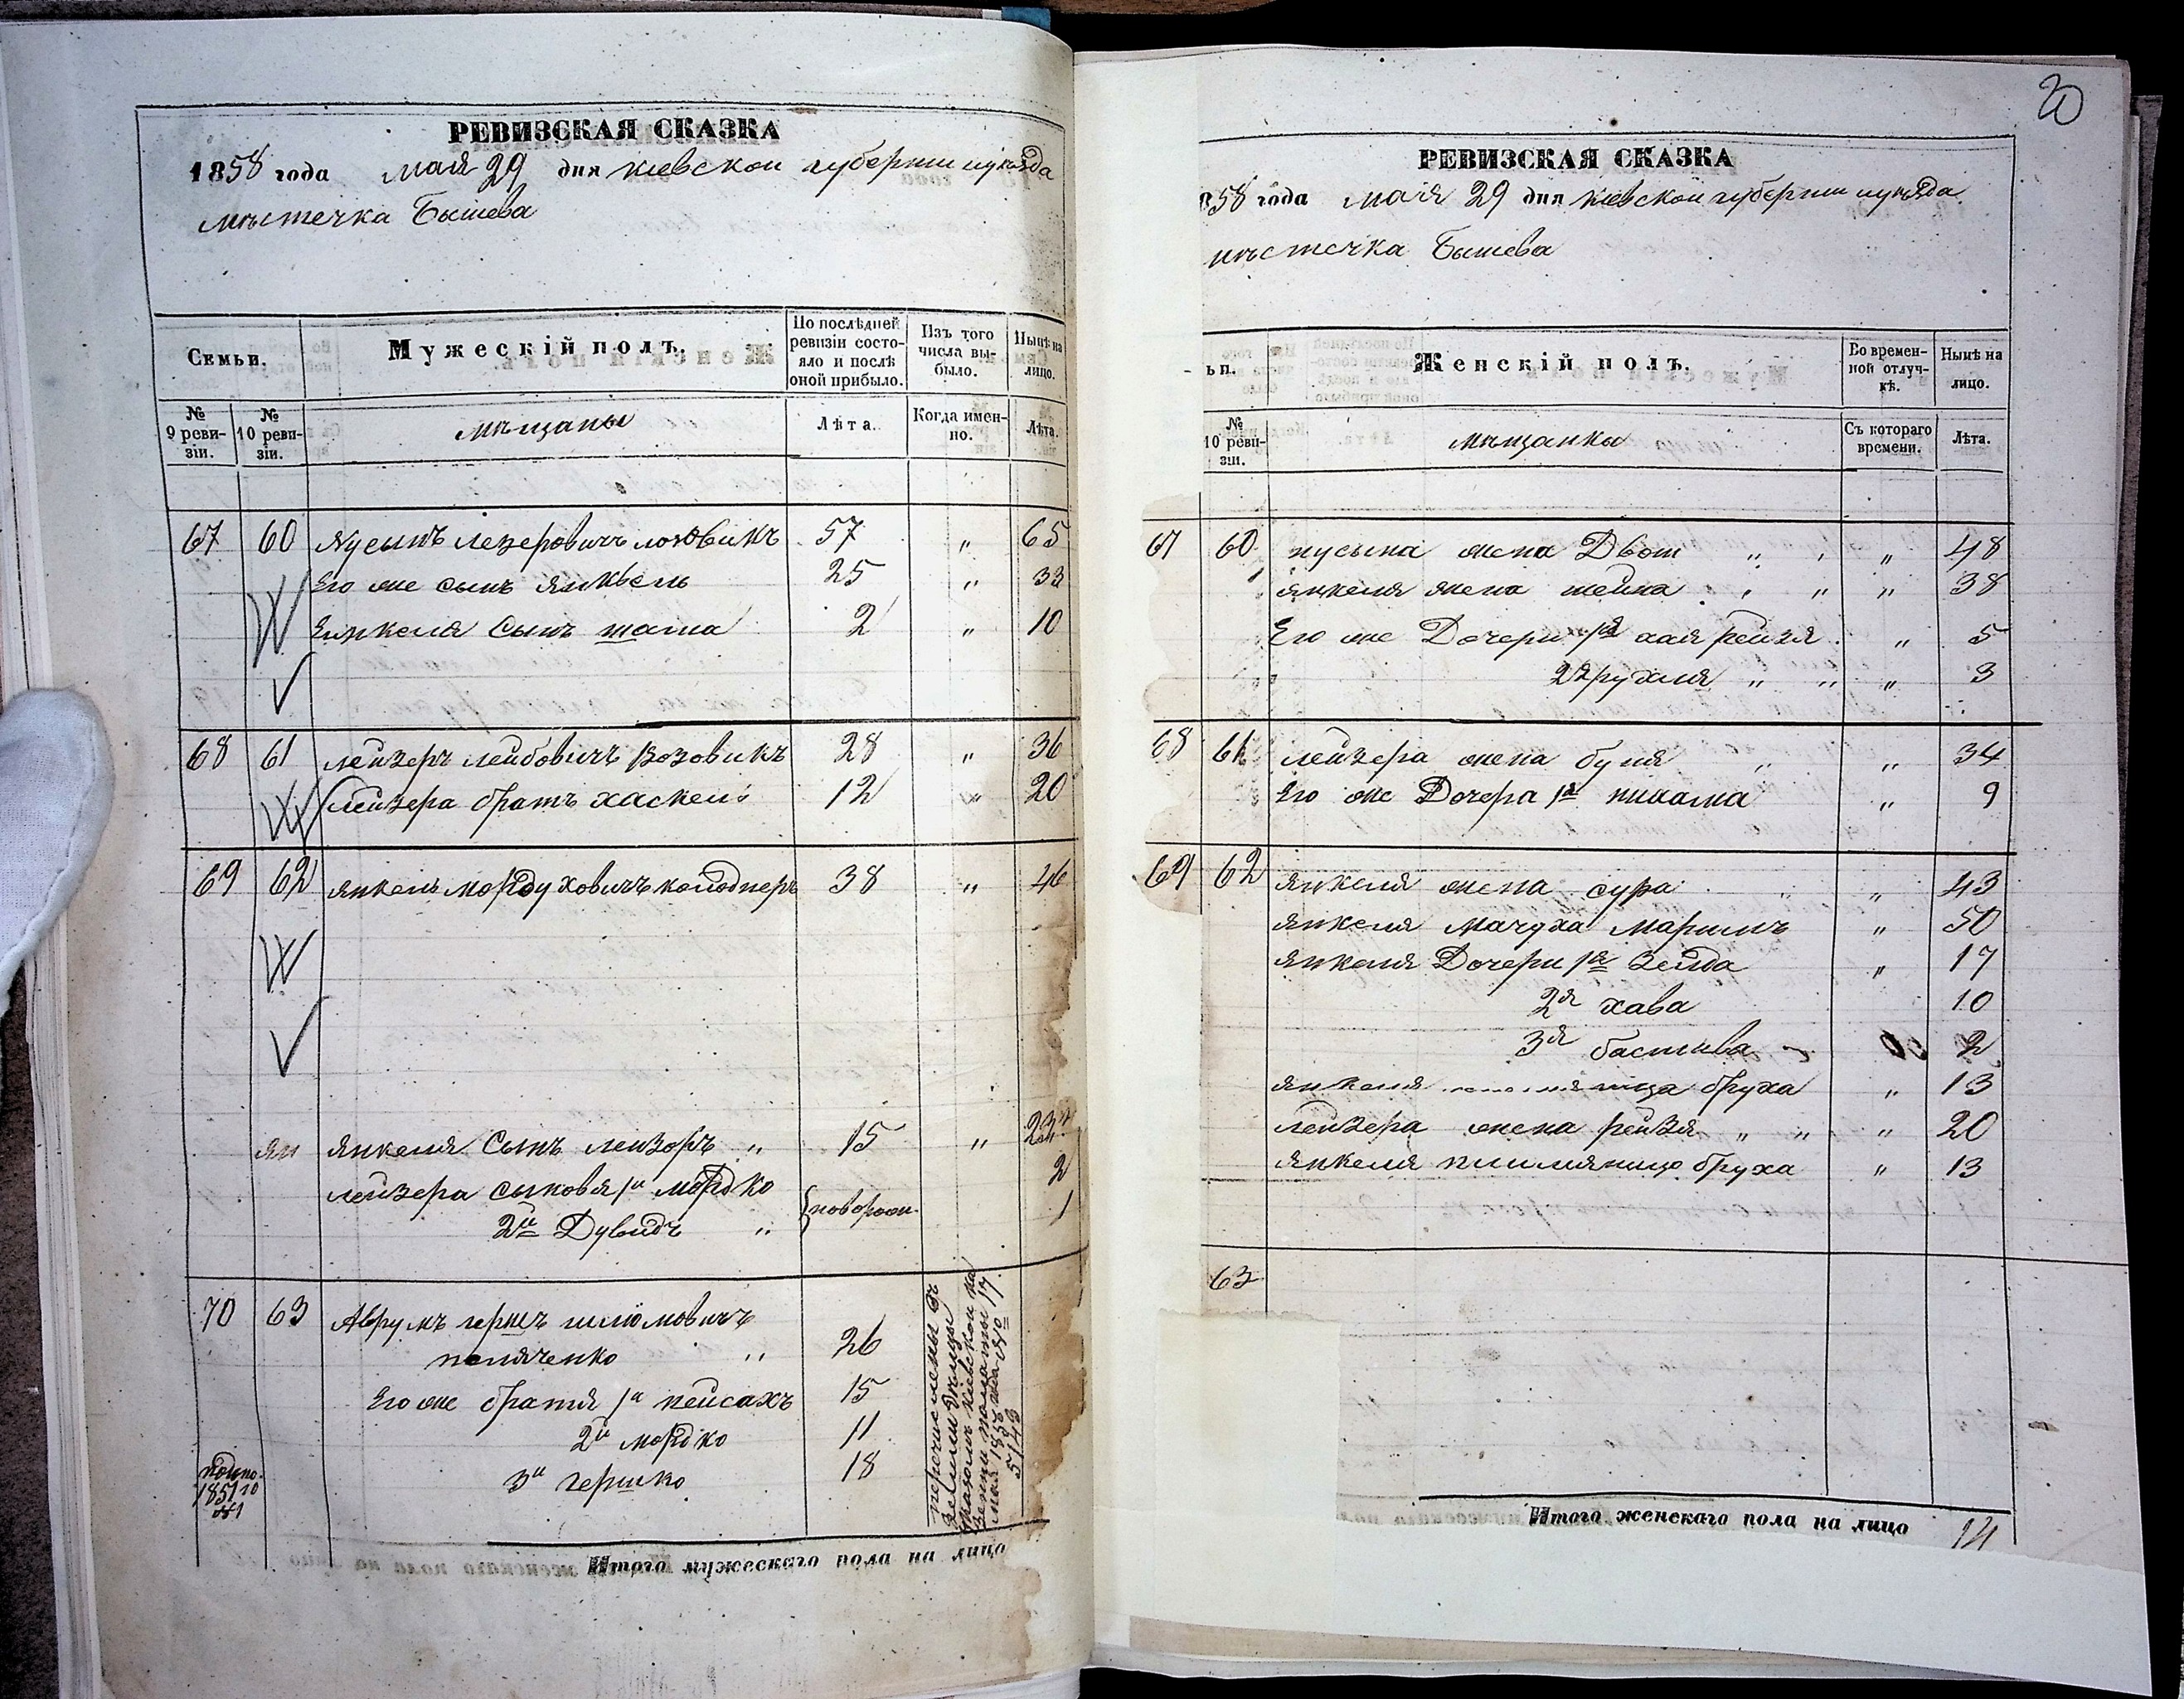 20
РЕВИЗСКАЯ СКАЗКА
1858 года мая 29 дня киевской губернии и уѣзда
мѣстечка Бышева
Семьи.
Мужескій полъ.
По послѣдней ревизіи состояло и послѣ оной прибыло.
Изъ того числа выбыло.
Нынѣ на лицо.
№ 9 ревизіи.
№ 10 ревизіи.
мѣщаны
Лѣта.
Когда именно.
Лѣта.
67 60 Нусынъ лезеровичъ 57 „ 65
Его же сынъ янкель 25 „ 33
Енкеля сынъ шама 2 „ 10
68 61 лейзеръ лейбовичъ возовикъ 28 „ 36
лейзера братъ хаскель 12 „ 20
69 62 янкель мордуховичъ 38 „ 46
ян янкеля сынъ лейзоръ „ 15 „ 23
лейзера сыновя 1й мордко 2
2й Дувидъ „ новорож. 1
70 63 Аврумъ гершъ шлiомовичъ
поляченко „ 26
Его же братя 1й пейсахъ 15
2й мордко 11
3й гершко 18
1851го
№1
перечислены въ
указомъ киевской ка
зенной палаты 17
мая 1858 года за № 17
5143
Итого мужескаго пола на лицо
РЕВИЗСКАЯ СКАЗКА
858 года мая 29 дня киевской губернии и уѣзда
мѣстечка Бышева
ьи.
Женскій полъ.
Во временной отлучкѣ.
Нынѣ на лицо.
№ 10 ревизіи.
мѣщанки
Съ котораго времени.
Лѣта.
67 60 нусына жена Двося „ „ „ 48
янкеля жена шейна „ „ „ 38
Его же Дочери 1я хая рейзя „ 5
2я рухля „ „ „ 3
68 61 лейзера жена буня „ „ 34
Его же Дочера 1я „ 9
69 62 янкеля жена сура „ „ 43
янкеля мачуха маримъ „ 50
янкеля Дочери 1я Зелда „ 17
2я хава 10
3я бастива 2
янкеля бруха „ 13
лейзера жена рейзя „ „ „ 20
янкеля племяница бруха „ 13
63
Итого женскаго пола на лицо 14